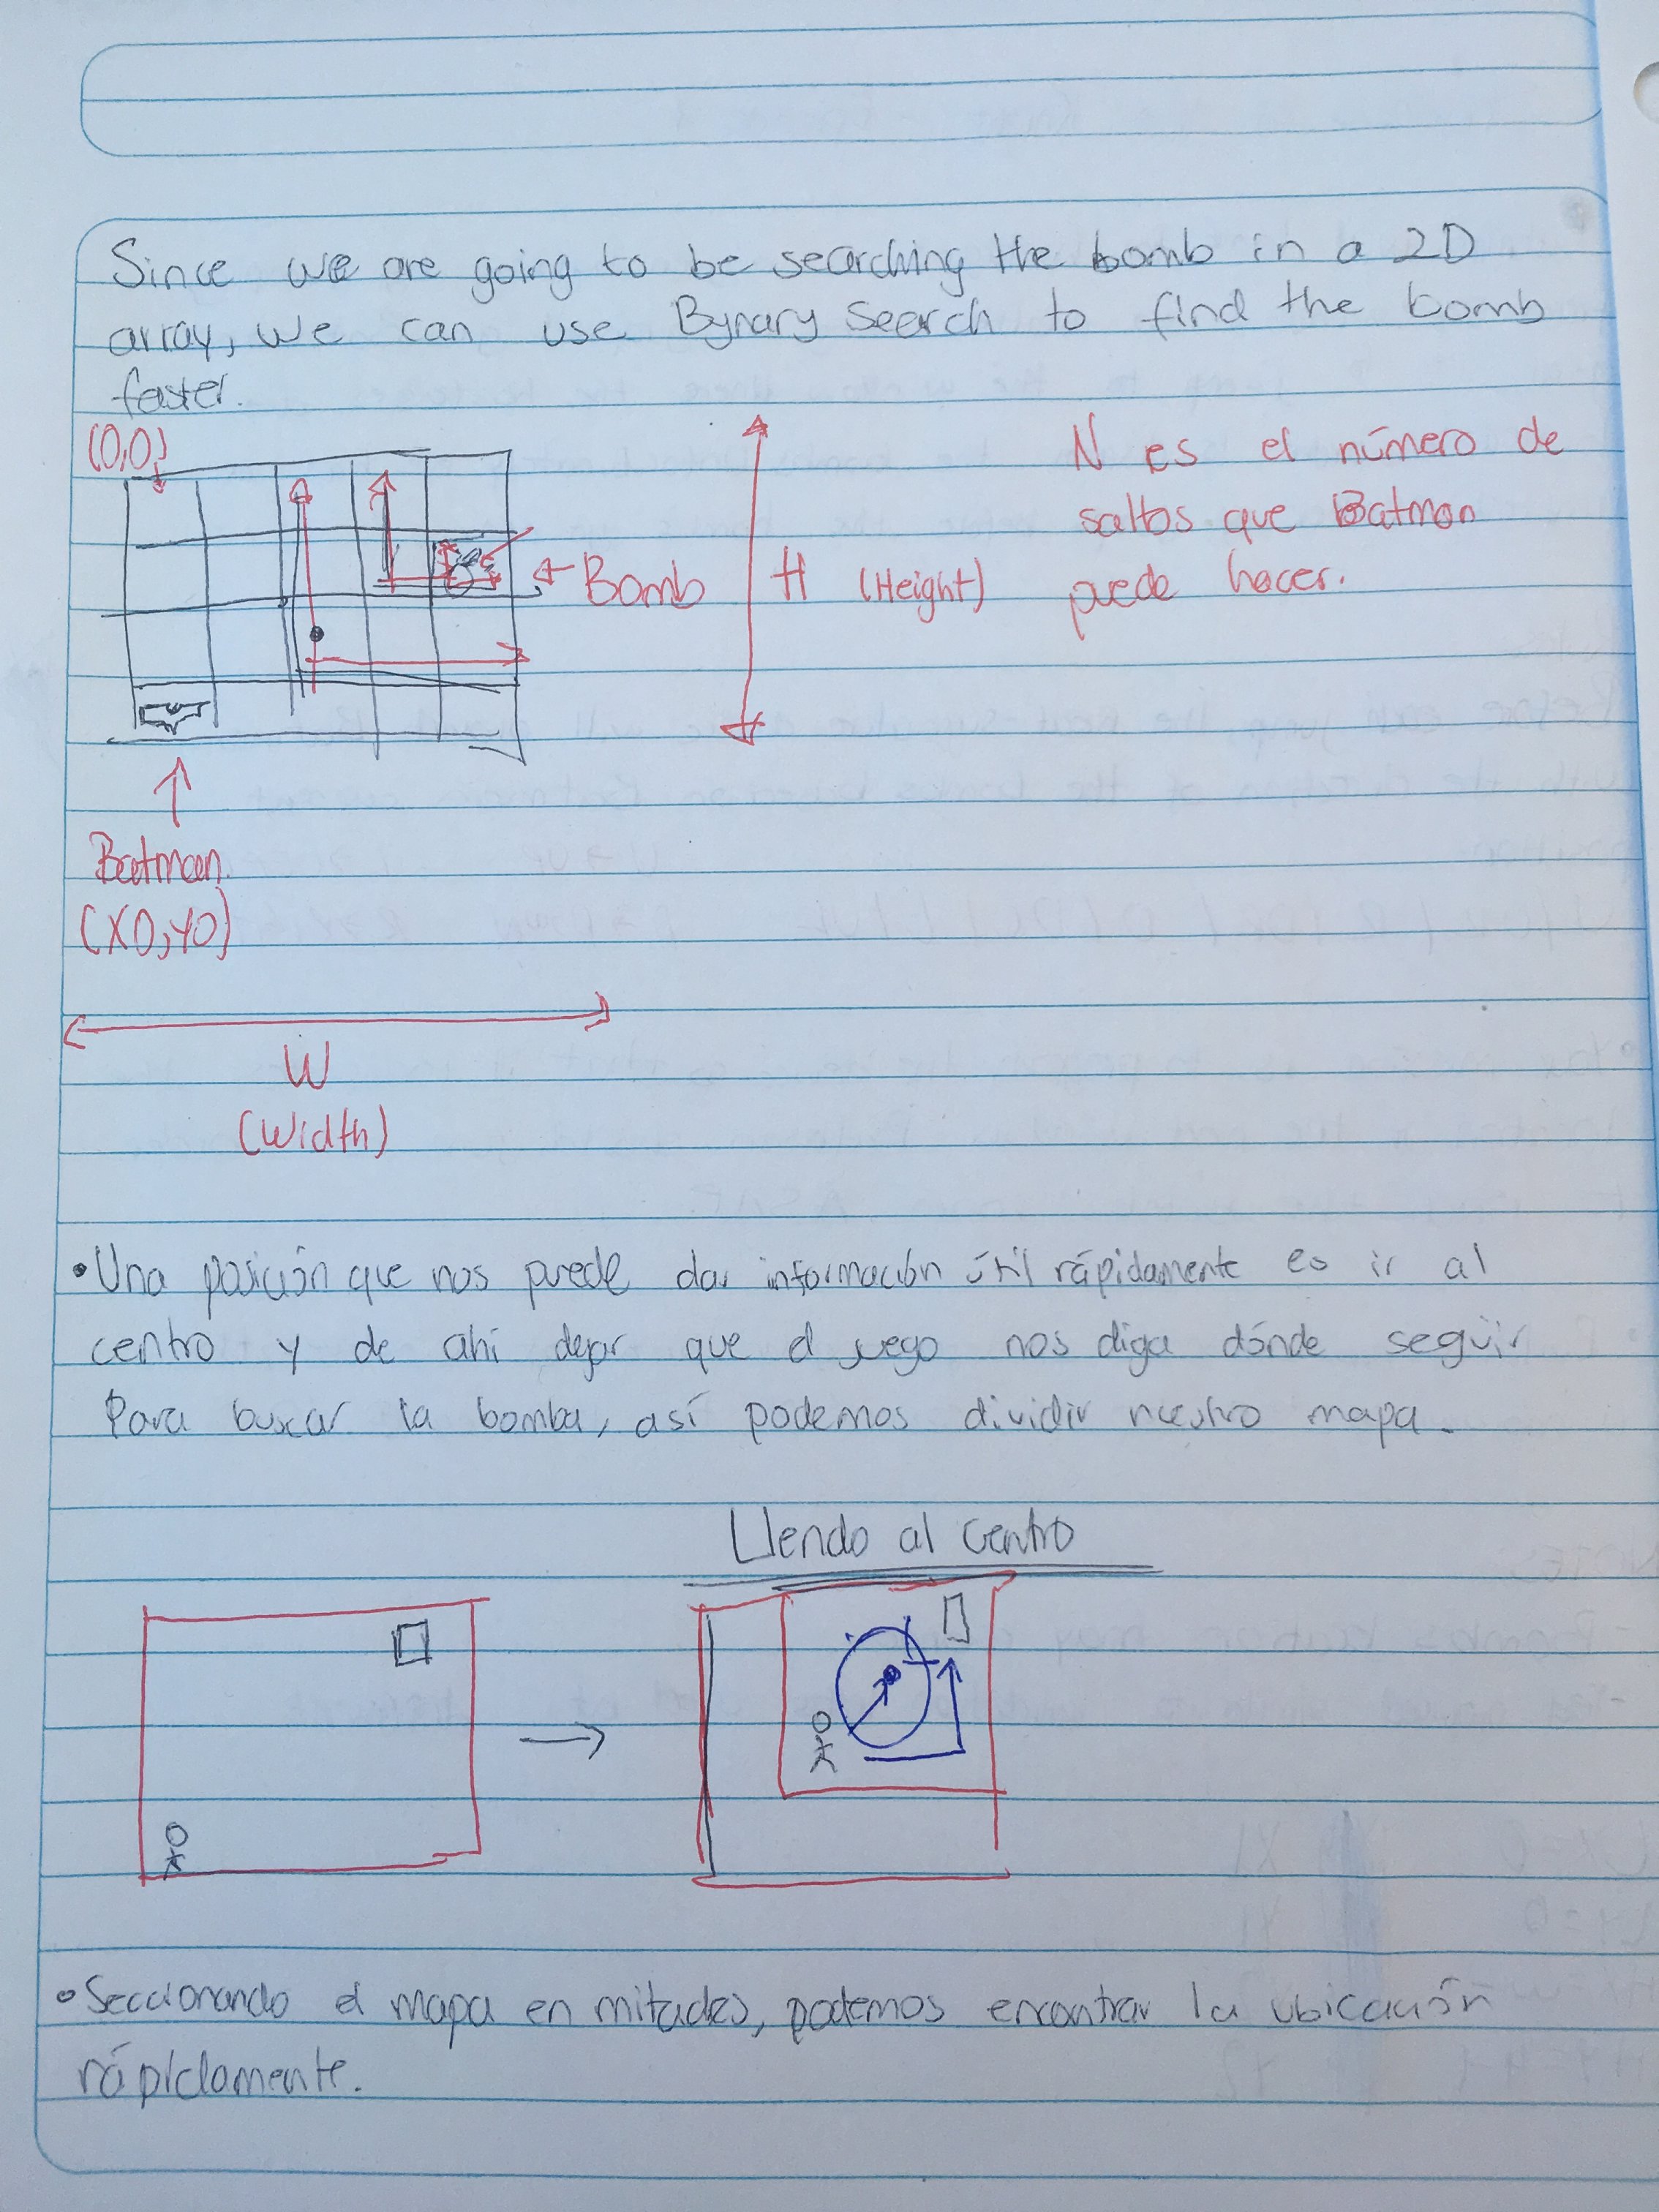 Since we are going to be searching the bomb in a 2D
array, we can use Bynary Search to find the bomb
faster.
(0,0)
N es el número de
saltos que Batman
puede hacer.
Bomb
H (Height)
Batman
(X0,Y0)
W
(Width)
• Una posición que nos puede dar información útil rápidamente es ir al
centro y de ahí dejar que el juego nos diga dónde seguir
Para buscar la bomba, así podemos dividir nuestro mapa.
Llendo al centro
• Seccionando el mapa en mitades, podemos encontrar la ubicación
rápidamente.